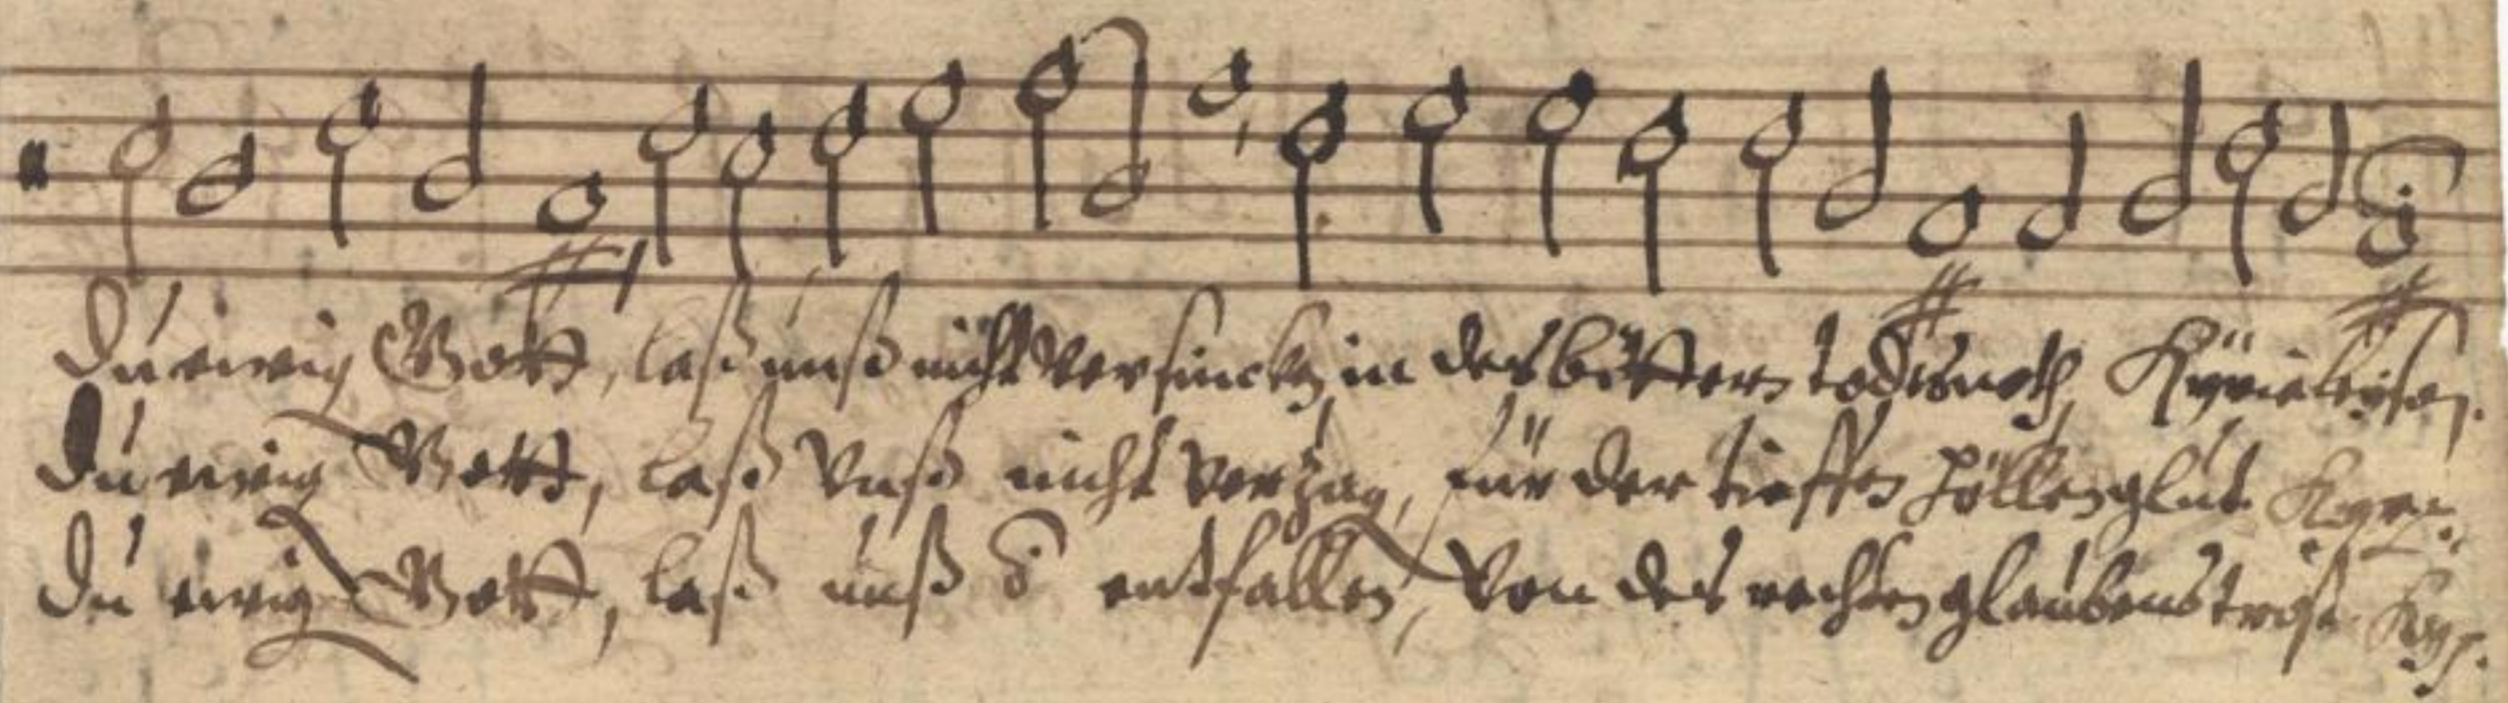 Du ewig Gott, laß unß nicht versincken in des bittern todtsnoth, Kÿrieleÿson.
Du ewig Gott, laß Vnß nicht verzag, für der tieffen höllen glut. Kyrie.
Du ewig Gott, laß unß entfallen, Von des rechten glaubens trost